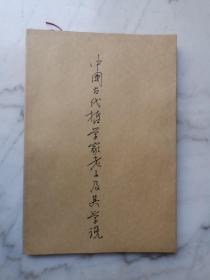 中國古代哲学家老子及其学説